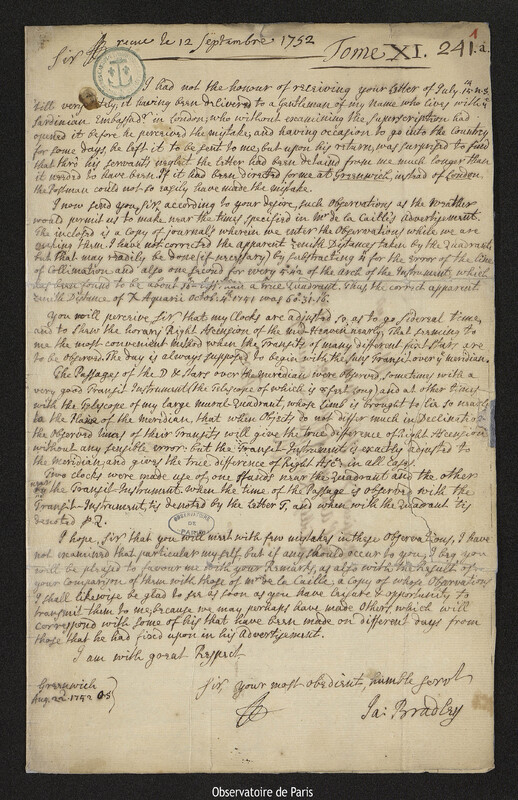 reçue le 12 Septembre 1752
Sir
Tome XI. 241.a.
1
I had not the honour of receiving your letter of July 15th N.S.
till very lately, it having been delivered to a Gentleman of my name who lives with ye
Sardinian Embassdr in London; who without examining the Superscription had
opened it before he perceived the mistake, and having occasion to go into the Country
for some days, he left it to be sent to me, but upon his return, was surprized to find
that thro his servants neglect the letter had been detaind from me much longer than
it needed to have been. If it had been directed for me at Greenwich, instead of London
the Postman could not so easily have made the mistake.
I now send you, Sir, according to your desire, such Observations as the Weather
would permit us to make near the times specified in Mr de la Caille's Advertisement.
The inclosed is a Copy of journals wherein we enter the Observations while we are
making them. I have not corrected the apparent Zenith Distances taken by the Quadrant,
but that may readily be done (if necessary) by substracting for the Error of the line
of Collimation and also one second for every of the Arch of the Instrument, which
has been found to be about less than a true Quadrant. Thus the correct apparent
Zenith Distance of Aquarii Octob. 1751 was 60.31.16.
You will perceive, Sir that my Clocks are adjusted so, as to go sidereal time,
and to shew the horary Right Ascension of the mid-Heaven nearly, that seeming to
me the most convenient method when the Transits of many different fixt Stars are
to be observed. The day is always supposed to begin with the Sun's Transit over ye meridian.
The Passages of the ☽ & Stars over the Meridian were observed sometimes with a
very good Transit Instrument (the Telescope of which is 8 feet long) and at other times
with the Telescope of my large mural Quadrant, whose limb is brought to lie so nearly
in the Plane of the Meridian, that when Objects do not differ much in Declination
the observed times of their Transits will give the true difference of Right Ascension
without any sensible error: but the Transit-Instrument is exactly adjusted to
the Meridian, and gives the true difference of Right Ascn in all Cases.
Two Clocks were made use of one stands near the Quadrant and the other
near the Transit-Instrument. when the time of the Passage is observed with the
Transit-Instrument, tis denoted by the Letter T, and when with the Quadrant tis
denoted p Q.
OBSERVATOIRE DE PARIS
I hope, Sir that you will meet with few mistakes in these Observations, I have
not examined that particularly my self, but if any should occur to you, I beg you
will be pleased to favour me with your Remarks, as also with the Result of
your Comparison of them with those of Mr de la Caille, a Copy of whose Observations
I shall likewise be glad to see as soon as you have leisure & opportunity to
transmit them to me, because we may perhaps have made Others, which will
correspond with some of his that have been made on different days from
those that he had fixed upon in his Advertisement.
I am with great Respect
Sir, your most obedient, humble Servt
Greenwich
Aug. 22. 1752 O.S.
Ja: Bradley
Observatoire de Paris